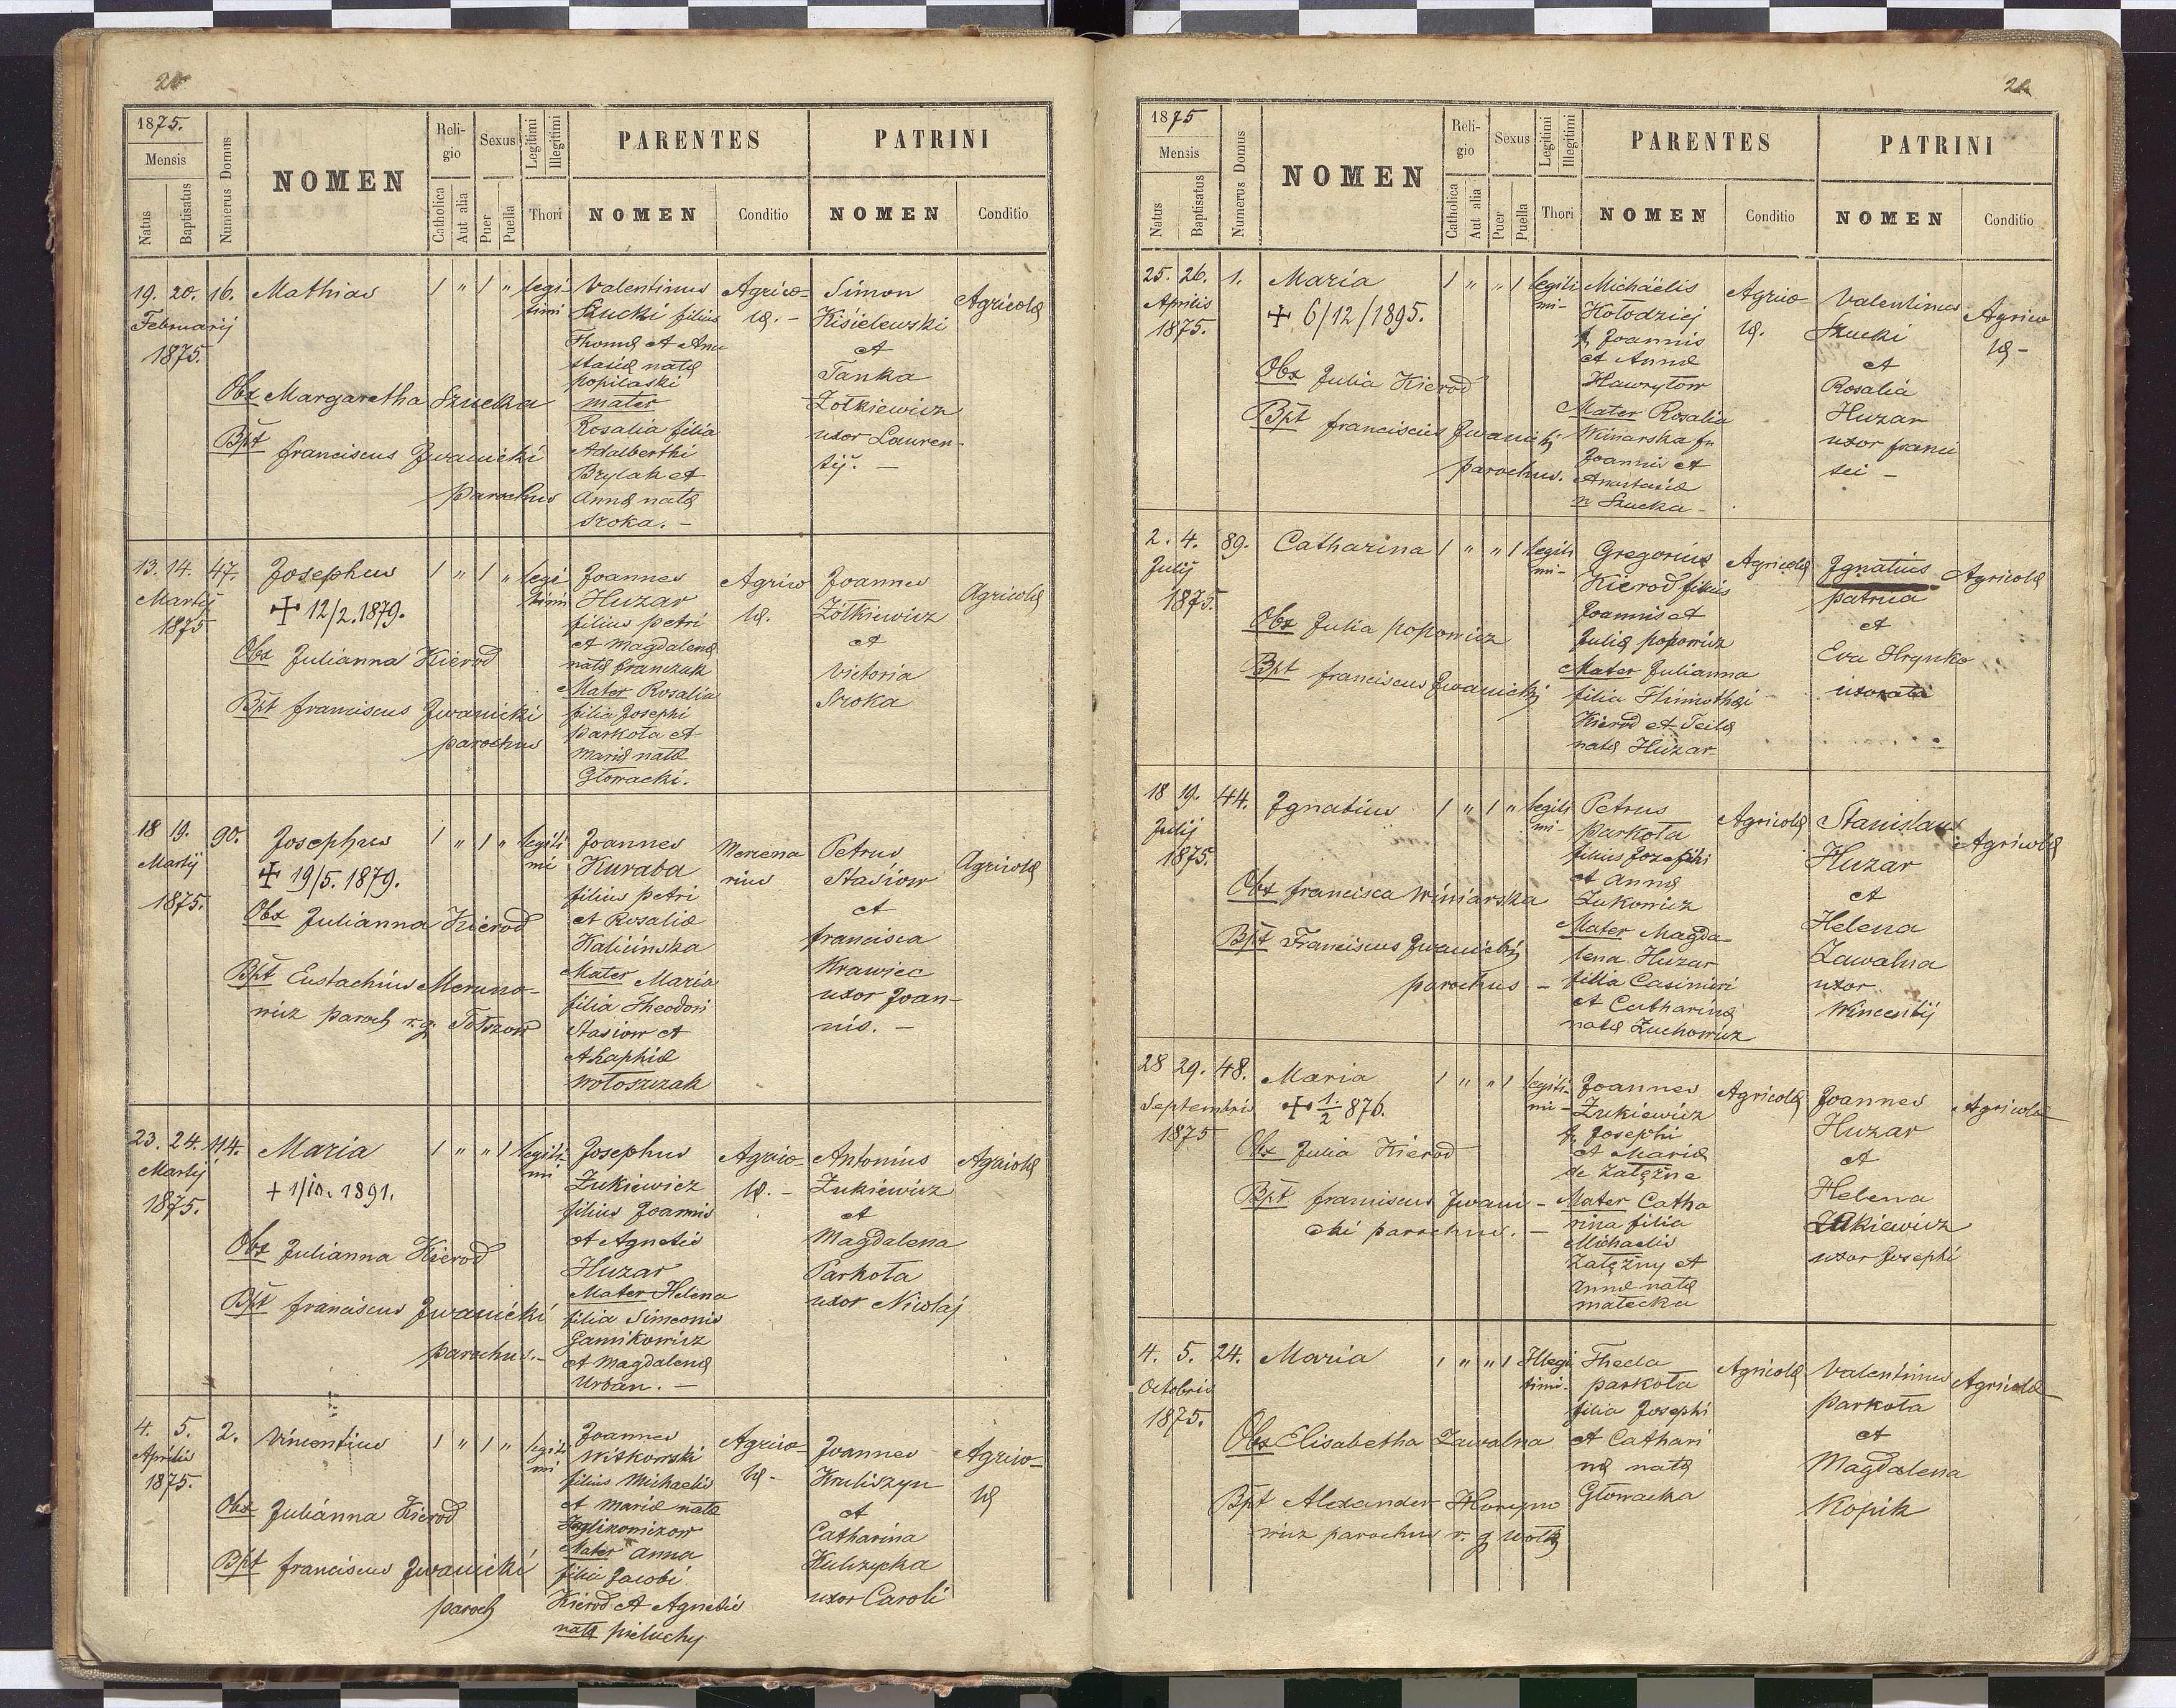 20
1875.
Mensis
Natus
Baptisatus
Numerus Domus
NOMEN
Religio
Catholica
Aut alia
Sexus
Puer
Puella
Legitimi
Illegitimi
Thori
PARENTES
NOMEN
Conditio
PATRINI
NOMEN
Conditio
19. 20. 16. Mathias 1 " 1 " legi-
timi
Februarij
1875.
Obx Margaretha Szucka
Bpt franciscus Iwanicki
parochus
Valentinus
Szucki filius
Thomæ et Ana
stasiæ natæ
popilaski
mater
Rosalia filia
Adalberthi
Brylak et
Annæ natæ
Sroka. -
Agrico-
læ. -
Simon
Kisielewski
et
Tanka
Żołkiewicz
uxor Lauren-
tij. -
Agricolæ
13. 14. 47. Josephus 1 " 1 " legi
timi
Martij
1875
+ 12/2. 1879.
Obx Julianna Kierod
Bpt franciscus Iwanicki
parochus
Joannes
Huzar
filius petri
et Magdalenæ
natæ franczuk
Mater Rosalia
filia Josephi
parkoła et
Mariæ natæ
Głowacki.
Agrico
læ.
Joannes
Żołkiewicz
et
Victoria
Sroka
Agricolæ
18 19. 90. Josephus 1 " 1 " legiti
mi
Martij
1875.
+ 19/5. 1879.
Obx Julianna Kierod
Bpt Eustachius Meruno-
wicz paroch r. g. Tołszow
Joannes
Kuraba
filius petri
et Rosaliæ
Kalicińska
Mater Maria
filia Theodori
Stasiow et
Ahaphiæ
Wołoszczak
Mercena
rius
Petrus
Stasiow
et
francisca
Krawiec
uxor Joan-
nis. -
Agricolæ
23. 24. 114. Maria 1 " " 1 legiti-
mi
Martij
1875.
+ 1/10. 1891.
Obx Julianna Kierod
Bpt franciscus Iwanicki
parochus.-
Josephus
Żukiewicz
filius Joannis
et Agnetis
Huzar
Mater Helena
filia Simeonis
Gamikowicz
et Magdalenæ
Urban. -
Agrico-
læ. -
Antonius
Żukiewicz
et
Magdalena
Parkoła
uxor Nicolaj
Agricolæ
4. 5. 2. Vincentius 1 " 1 " legiti
mi
Aprilis
1875.
Obx Julianna Kierod
Bpt franciscus Iwanicki
paroch
Joannes
Witkowski
filius Michaelis
et Mariæ natæ
Mater Anna
filia Jacobi
Kierod et Agnetis
natæ pieluchy
Agrico-
læ-
Joannes
Kruliszyn
et
Catharina
Kulczycka
uxor Caroli
Agrico-
læ
1875
Mensis
Natus
Baptisatus
Numerus Domus
NOMEN
Religio
Catholica
Aut alia
Sexus
Puer
Puella
Legitimi
Illegitimi
Thori
PARENTES
NOMEN
Conditio
PATRINI
NOMEN
Conditio
25. 26. 1. Maria 1 " " 1 legiti
mi-
Aprilis
1875.
+ 6/12/1895.
Obx Julia Kierod
Bpt franciscus Iwanicki
parochus.
Michäelis
Hołodziej
f. Joannis
et Annæ
Hawryłow
Mater Rosalia
Winiarska f.
Joannis et
Anastasiæ
n Szucka -
Agrico
læ.
Valentinus
Szucki
et
Rosalia
Huzar
uxor franci
sci -
Agrico
læ-
2. 4. 89. Catharina 1 " " 1 legiti
mi-
Julij
1875.
Obx Julia popowicz
Bpt franciscus Iwanicki
Gregorius
Kierod filius
Joannis et
Juliæ popowicz
Mater Julianna
filia Thimothæi
Kierod et Teclæ
natæ Huzar
Agricolæ
Ignatius
patrua
et
Eva Hrynko
uxorata
Agricolæ
18 19. 44. Ignatius 1 " 1 " legiti
mi-
Julij
1875.
Obx francisca Winiarska
Bpt Franciscus Iwanicki
parochus -
Petrus
parkoła
filius Jozephi
et Annæ
Żukowicz
Mater Magda-
lena Huzar
filia Casimiri
et Catharinæ
natæ Żuchowicz
Agricolæ
Stanislaus
Huzar
et
Helena
Zawalna
uxor
Wincentij
Agricolæ
28 29. 48. Maria 1 " " 1 legiti-
mi-
Septembris
1875
+ 1/2 876.
Obx Julia Kierod
Bpt franciscus Iwani-
cki parochus. -
Joannes
Żukiewicz
f. Josephi
et Mariæ
de Załężne
Mater Catha
rina filia
Michaelis
Załężny et
Annæ natæ
małecka
Agricolæ
Joannes
Huzar
et
Helena
Żukiewicz
uxor Josephi
Agricolæ
4. 5. 24. Maria 1 " " 1 Illegi
timi-
Octobris
1875.
Obx Elisabetha Zawalna
Bpt Alexander
parochus r. g
Thecla
parkoła
filia Josephi
et Cathari
næ natæ
Głowacka
Agricolæ
Valentinus
Parkoła
et
Magdalena
Kopik
Agricolæ